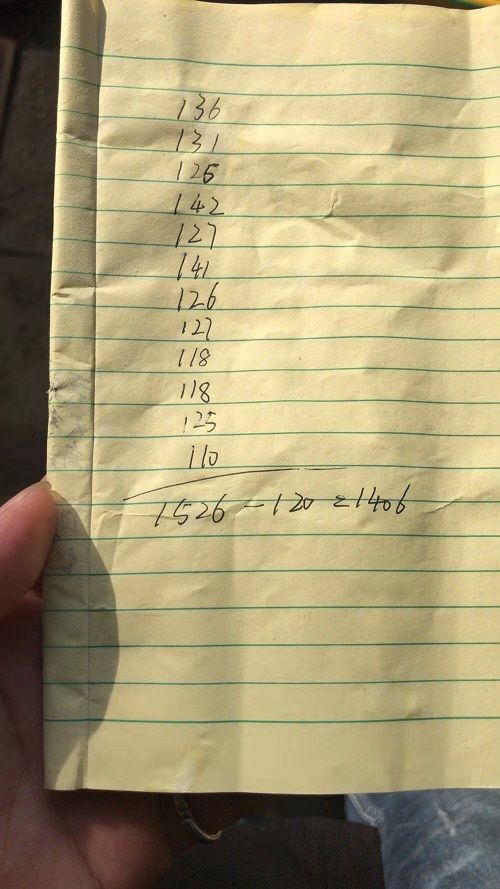 136
131
125
142
127
141
126
127
118
118
125
110
1526 - 120 = 1406